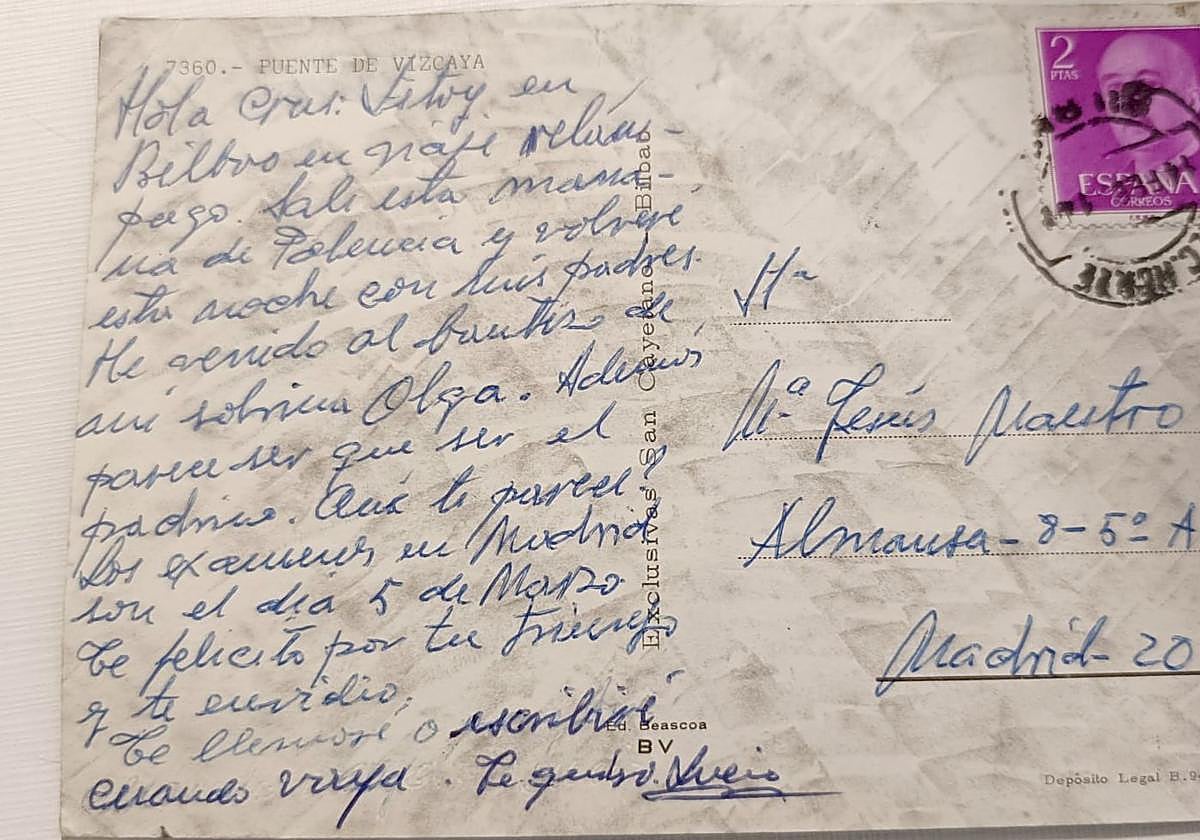 7360.- PUENTE DE VIZCAYA
Hola Cruz: Estoy en
Bilbao en viaje relám-
pago. Salí esta maña-
na de Palencia y volveré
esta noche con mis padres.
He venido al bautizo de
mi sobrina Olga. Además
parece ser que ser el
padrino. Qué te parece?
Los exámenes en Madrid
son el día 5 de Marzo
Te felicito por tu triunfo
y te envidio.
Te llamaré o escribiré
cuando vaya. Te quiero.
Exclusivas San Cayetano - Bilbao
Ed. Beascoa
BV
2
PTAS
ESPAÑA
CORREOS
Mª Jesús Maestro
Almansa - 8 - 5º A
Madrid - 20
Depósito Legal B.